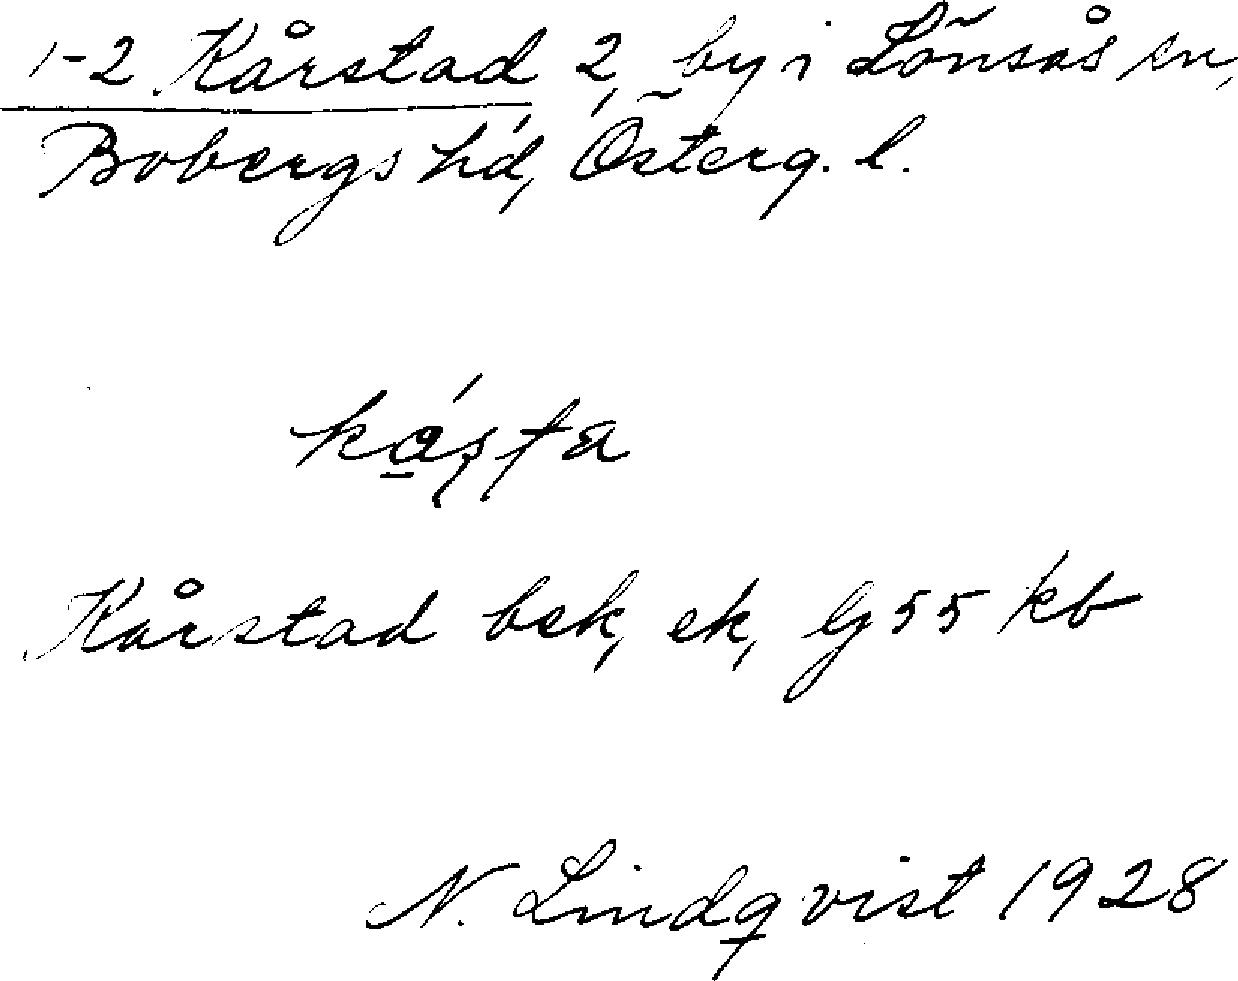 1-2 Kårstad 2, by i Lönsås sn,
Bobergs hd, Österg. l.
kåsta
Kårstad bek, ek, Gj 55 kb
N. Lindqvist 1928